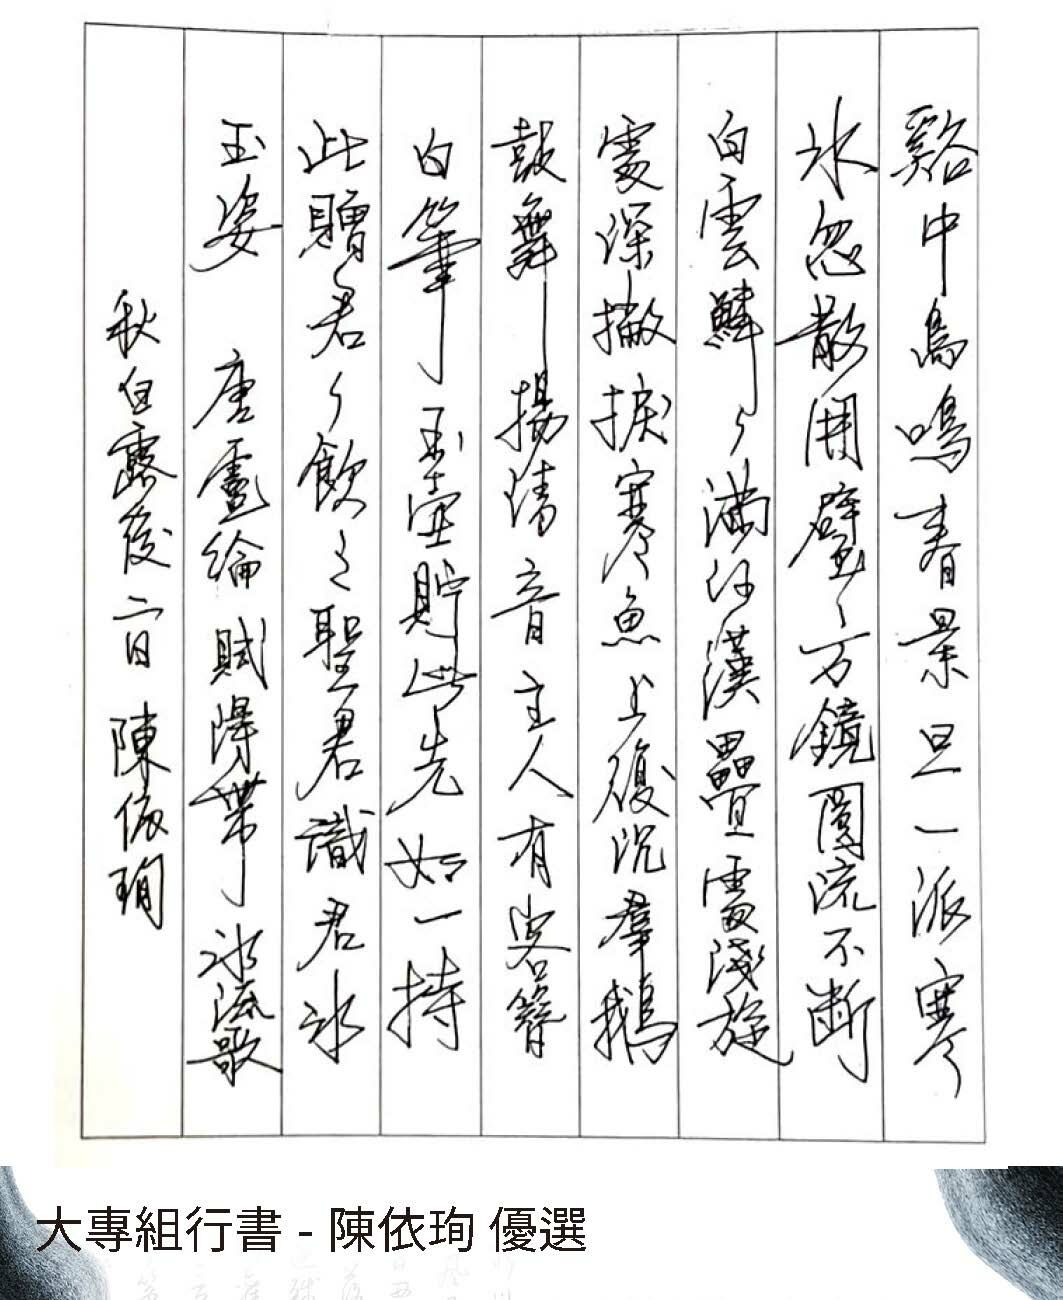 谿中鳥鳴春景旦一派寒
氷忽散開璧方鏡圓流不斷
白雲鱗々滿河漢疊處淺旋
處深撇捩寒魚上復沉羣鵝
鼓舞揚清音主人有客簪
白筆玉壺貯水光如一持
此贈君々飲之聖君識君氷
玉姿 唐盧綸賦得帶冰流歌
秋白露後二日 陳依珣
大專組行書 - 陳依珣 優選